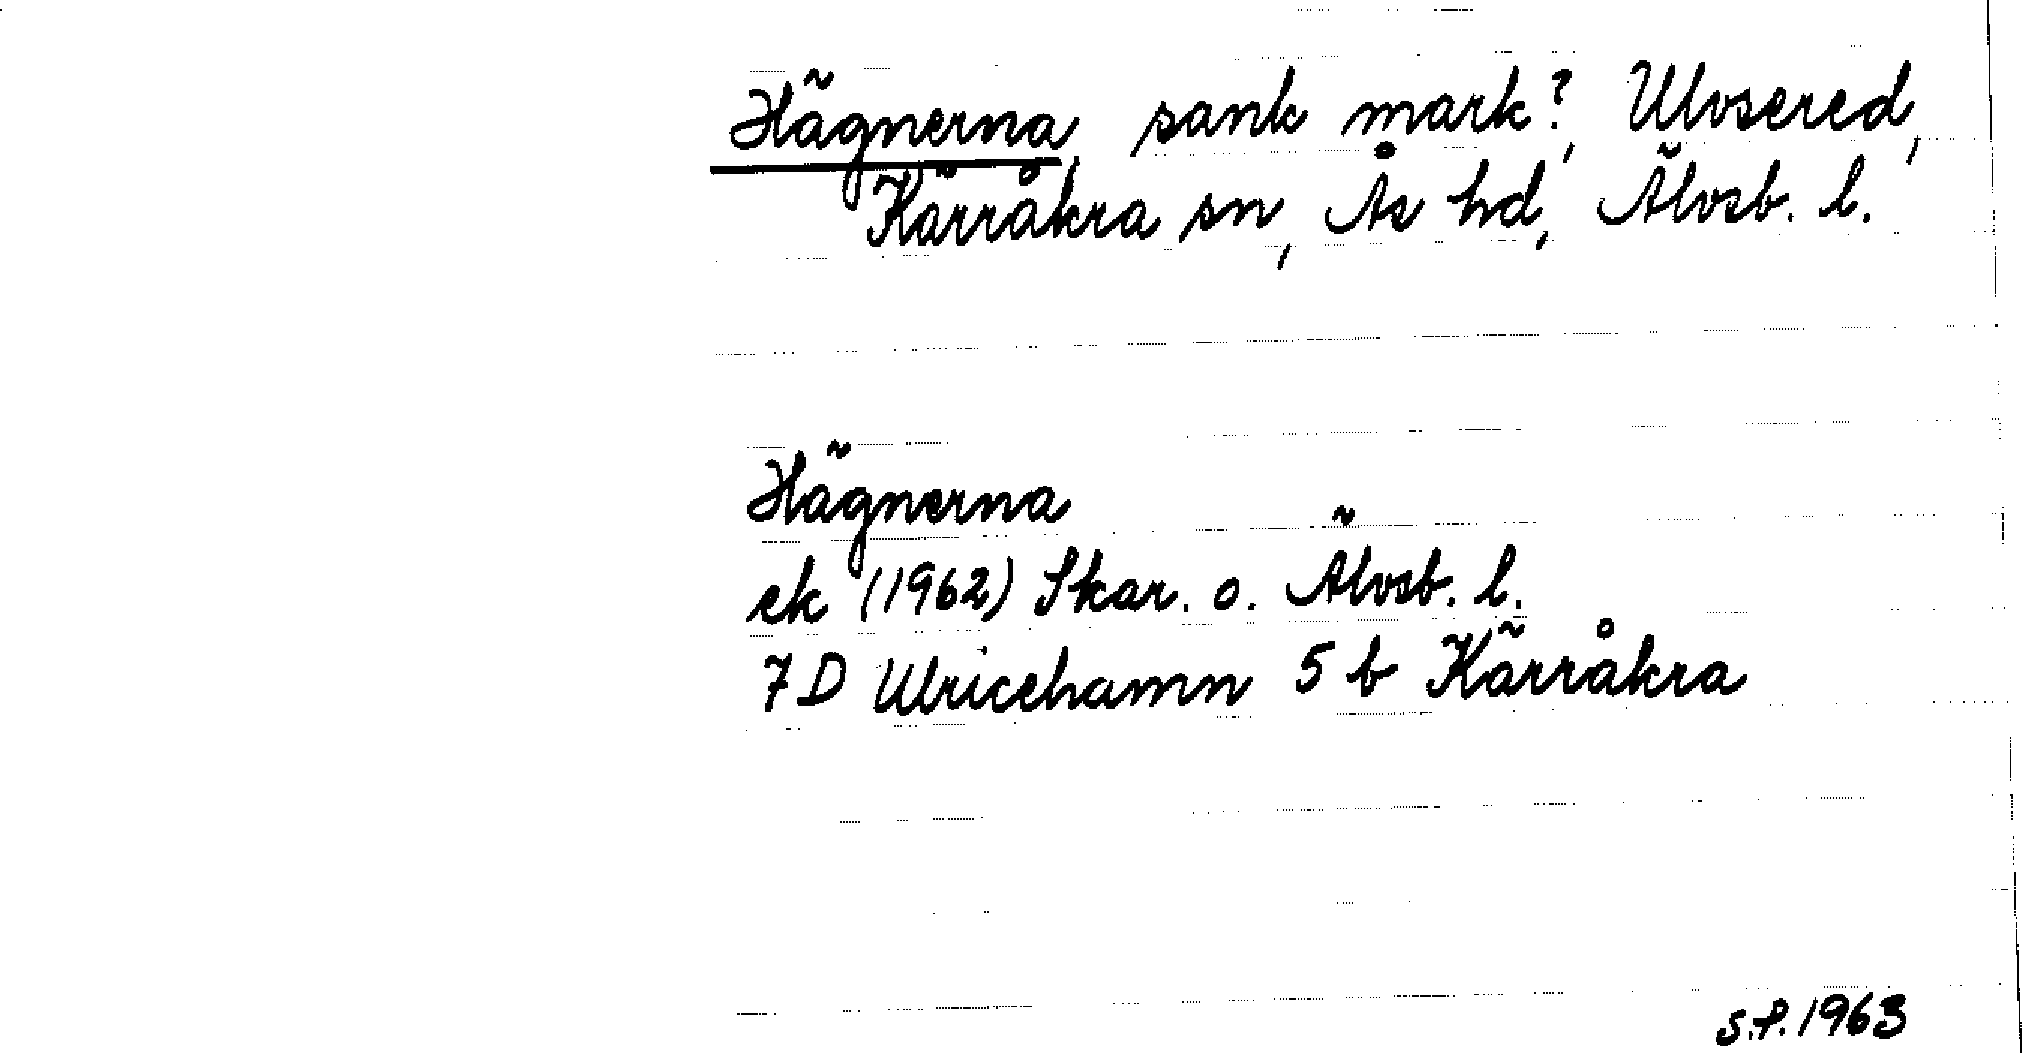 Hägnerna, sank mark?, Ulvsered,
Kärråkra sn, Ås hd, Älvsb. l.
Hägnerna
ek (1962) Skar. o. Älvsb. l.
7D Ulricehamn 5 b Kärråkra
S.P. 1963